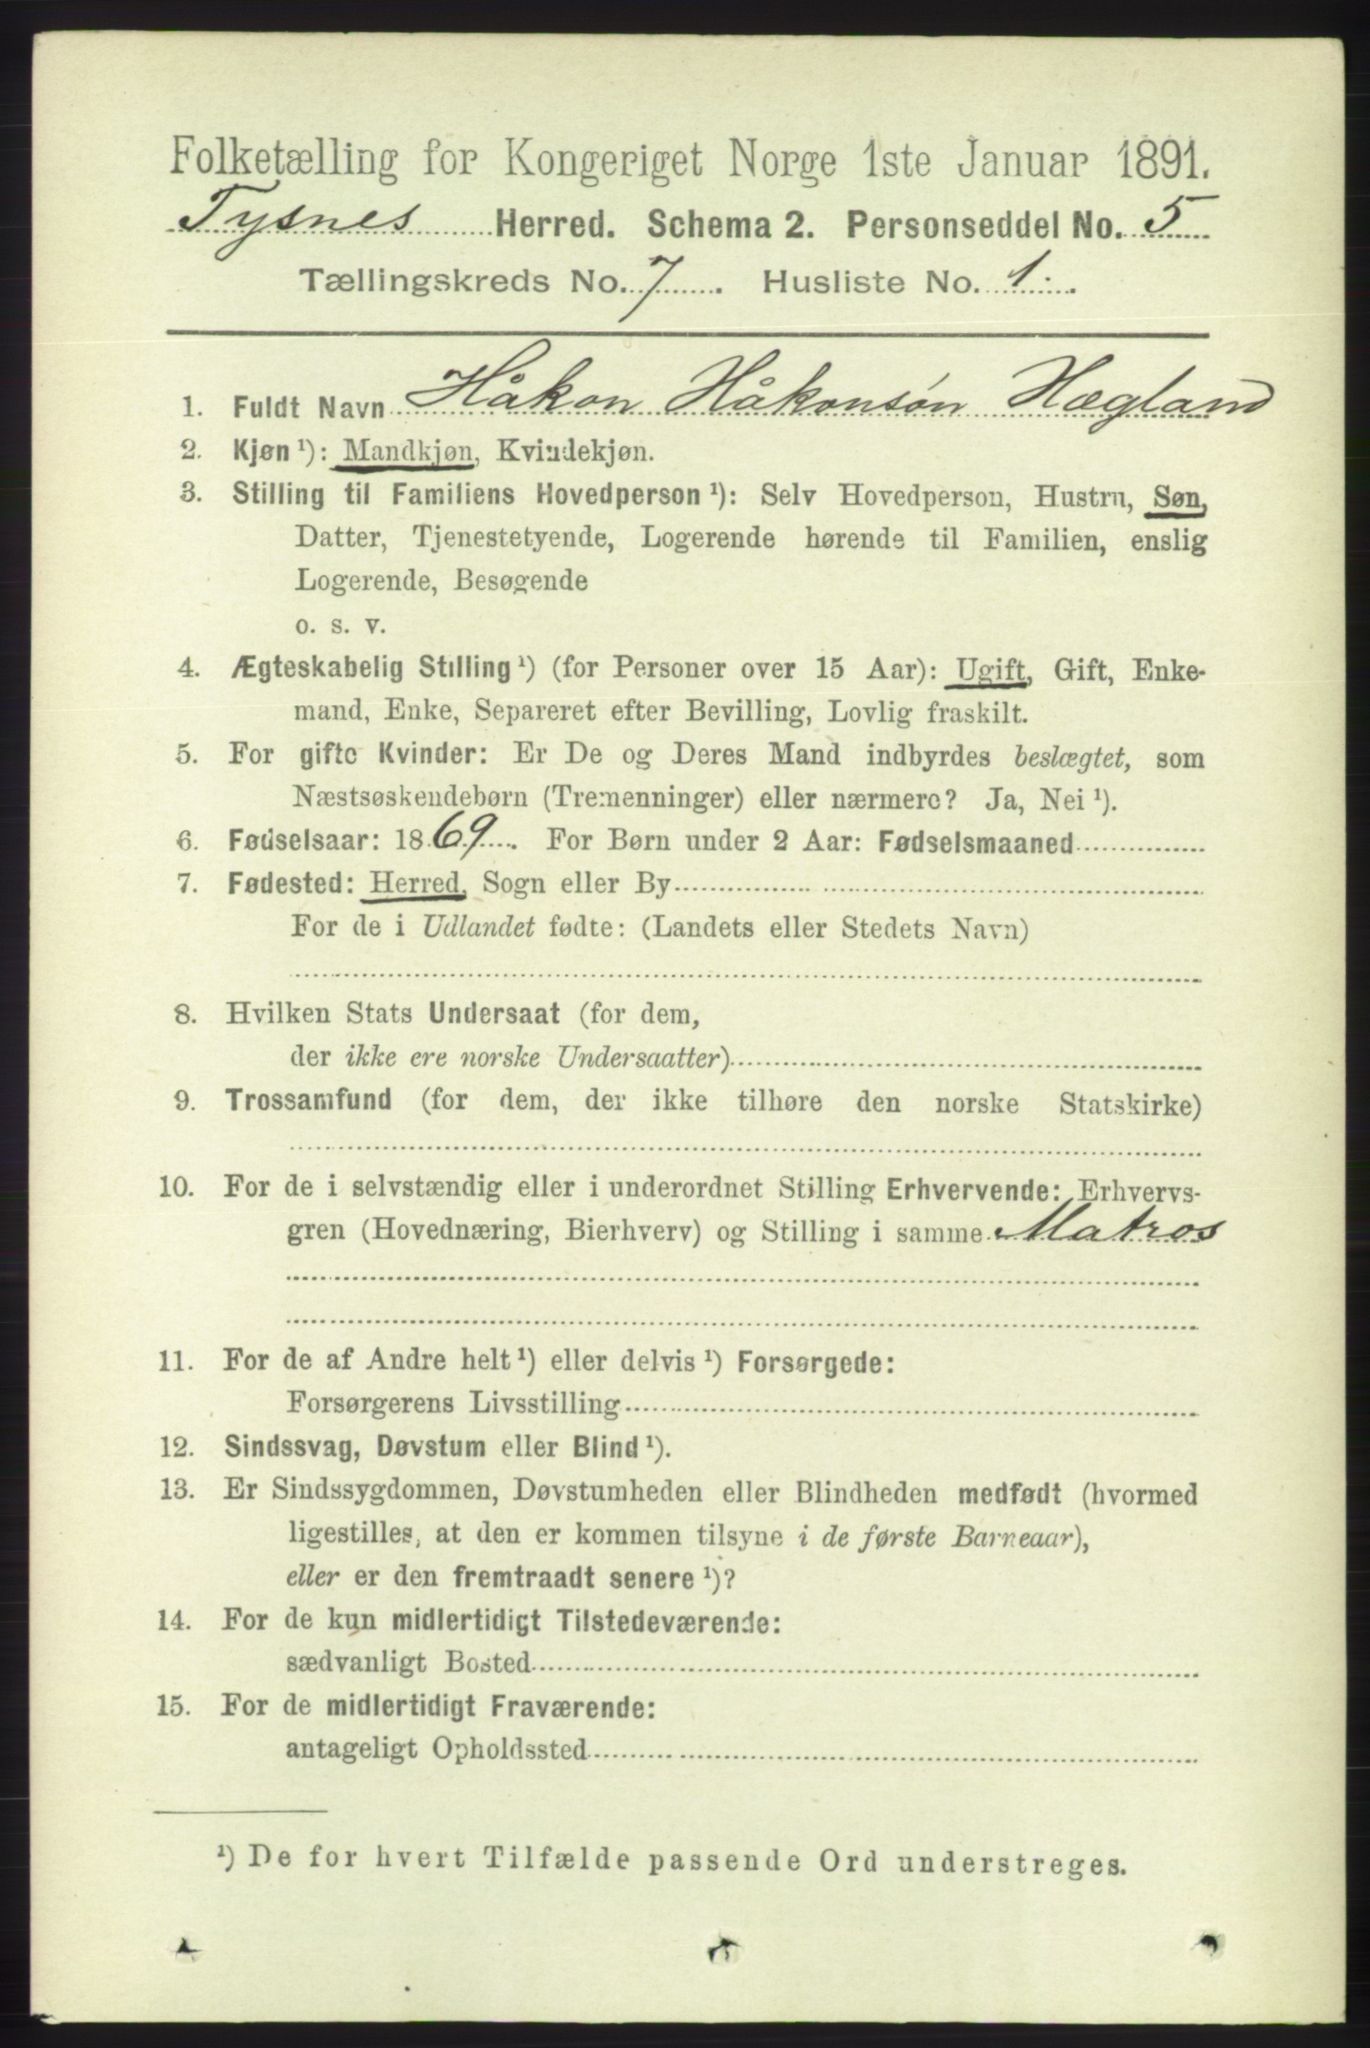 Folketælling for Kongeriget Norge 1ste Januar 1891.
Tysnes Herred. Schema 2. Personseddel No. 5
Tællingskreds No. 7. Husliste No. 1.
1. Fuldt Navn Håkon Håkonsøn Hægland
2. Kjøn ¹): Mandkjøn, Kvindekjøn.
3. Stilling til Familiens Hovedperson ¹): Selv Hovedperson, Hustru, Søn,
Datter, Tjenestetyende, Logerende hørende til Familien, enslig
Logerende, Besøgende
o. s. v.
4. Ægteskabelig Stilling ¹) (for Personer over 15 Aar): Ugift, Gift, Enke-
mand, Enke, Separeret efter Bevilling, Lovlig fraskilt.
5. For gifte Kvinder: Er De og Deres Mand indbyrdes beslægtet, som
Næstsøskendebørn (Tremenninger) eller nærmere? Ja, Nei ¹).
6. Fødselsaar: 1869. For Børn under 2 Aar: Fødselsmaaned
7. Fødested: Herred, Sogn eller By
For de i Udlandet fødte: (Landets eller Stedets Navn)
8. Hvilken Stats Undersaat (for dem,
der ikke ere norske Undersaatter)
9. Trossamfund (for dem, der ikke tilhøre den norske Statskirke)
10. For de i selvstændig eller i underordnet Stilling Erhvervende: Erhvervs-
gren (Hovednæring, Bierhverv) og Stilling i samme Matros
11. For de af Andre helt ¹) eller delvis ¹) Forsørgede:
Forsørgerens Livsstilling
12. Sindssvag, Døvstum eller Blind ¹).
13. Er Sindssygdommen, Døvstumheden eller Blindheden medfødt (hvormed
ligestilles, at den er kommen tilsyne i de første Barneaar),
eller er den fremtraadt senere ¹)?
14. For de kun midlertidigt Tilstedeværende:
sædvanligt Bosted
15. For de midlertidigt Fraværende:
antageligt Opholdssted
¹) De for hvert Tilfælde passende Ord understreges.